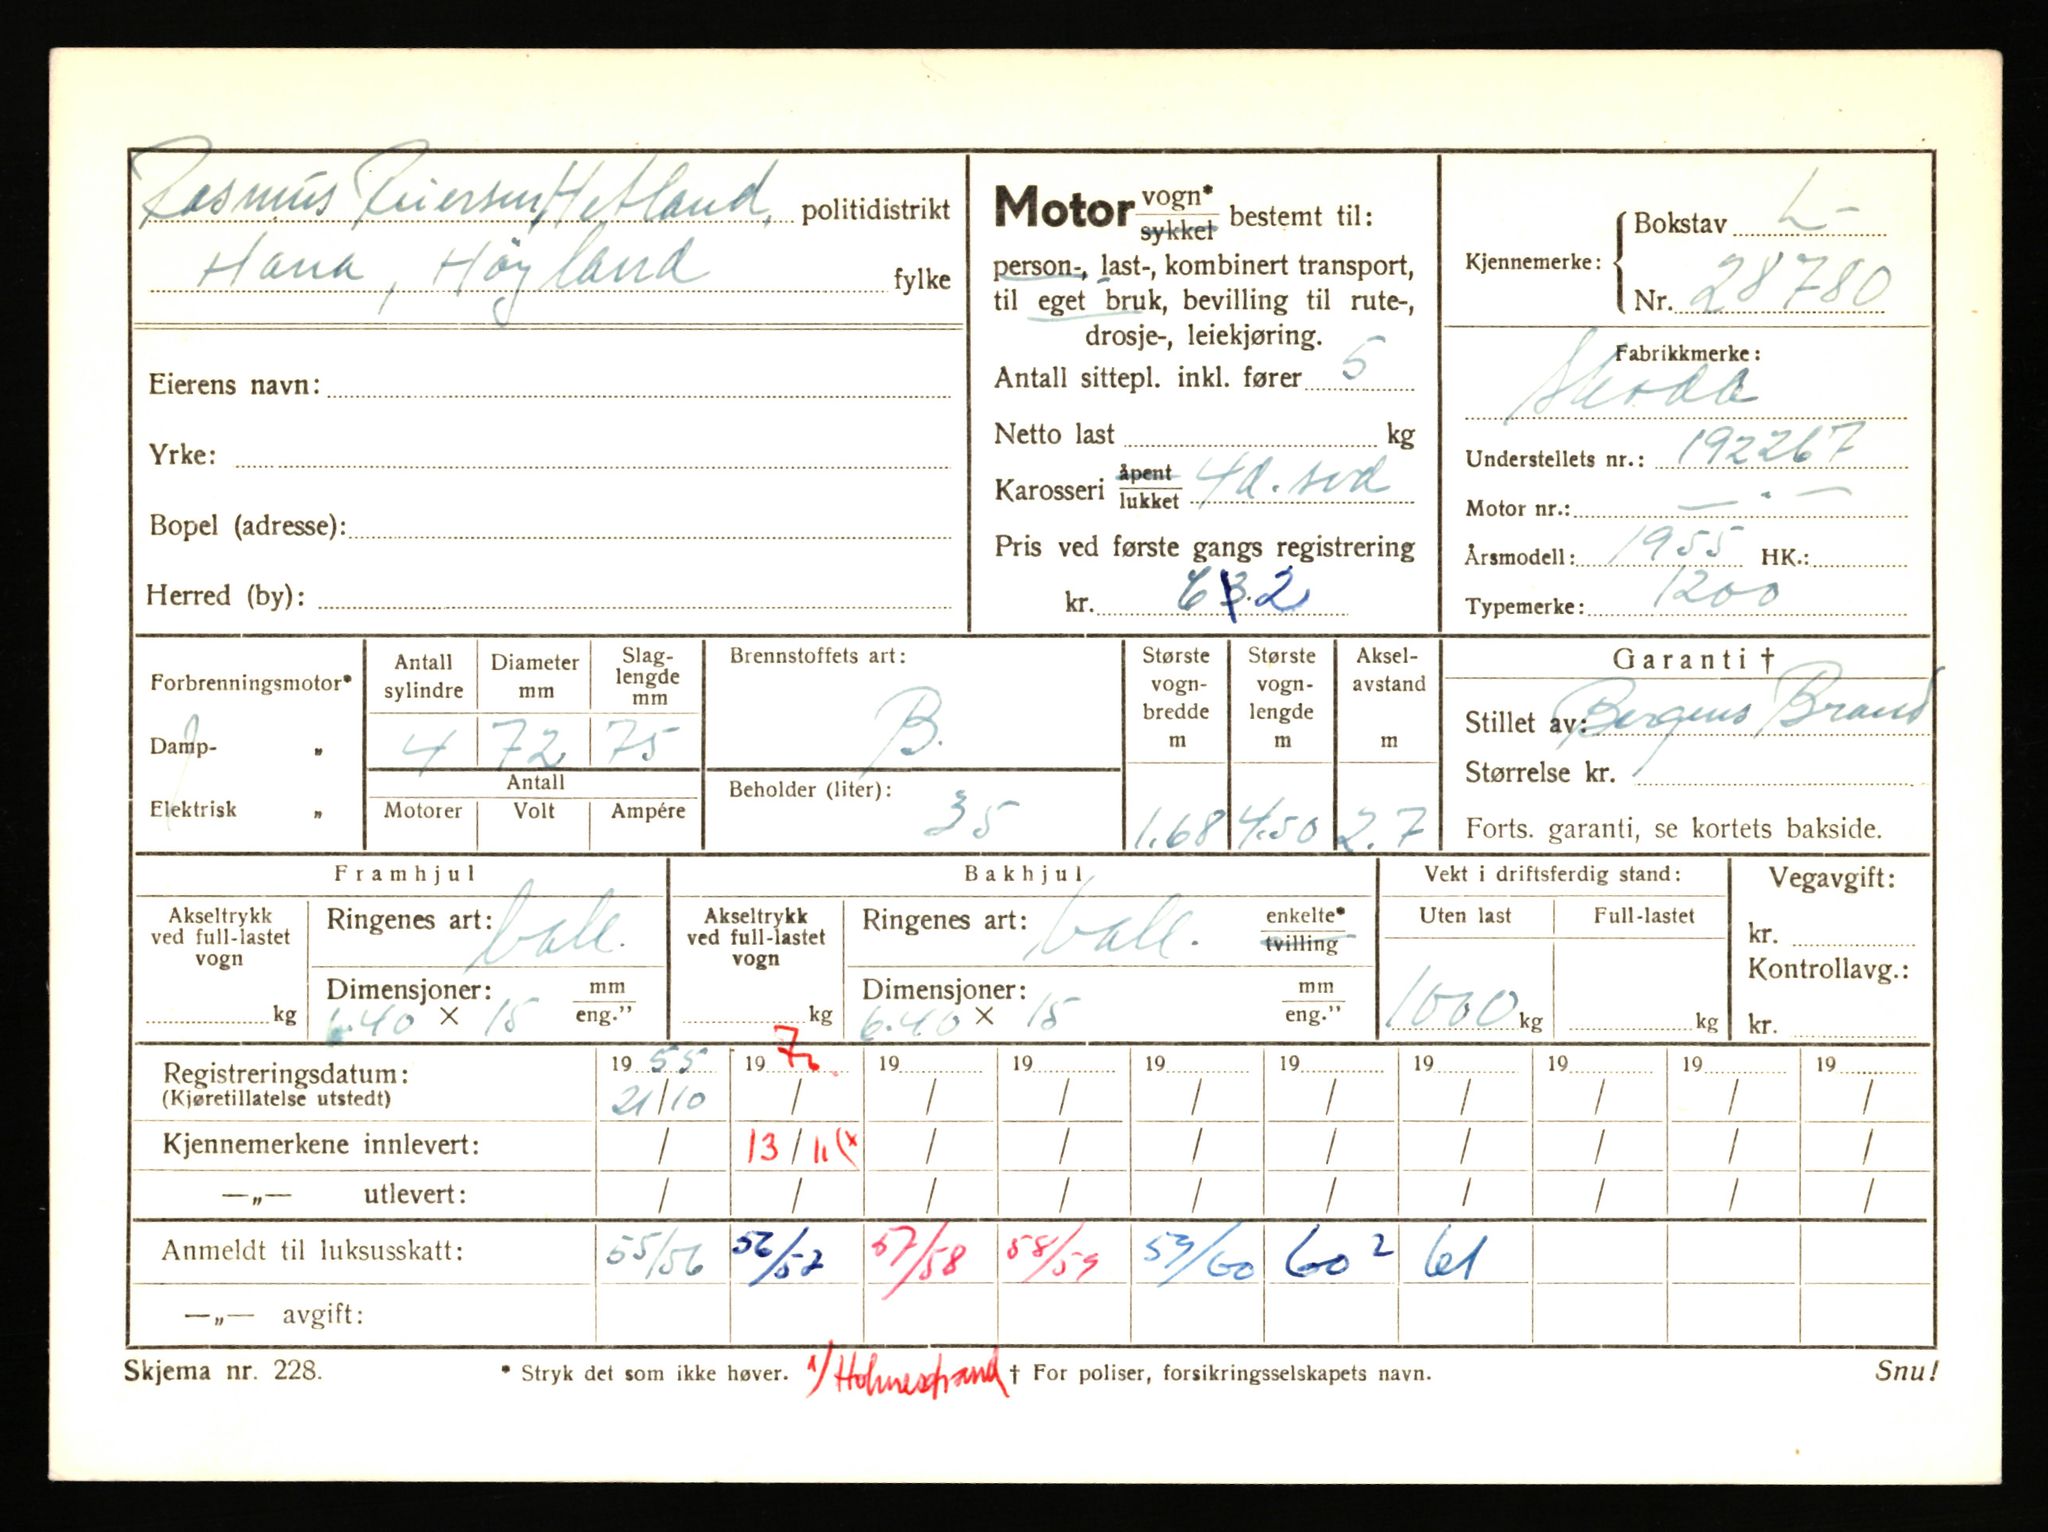 Rasmus Reiersen Hetland, politidistrikt
Hana, Høyland fylke
Eierens navn:
Yrke:
Bopel (adresse):
Herred (by):
Motor vogn* sykkel bestemt til:
person-, last-, kombinert transport,
til eget bruk, bevilling til rute-,
drosje-, leiekjøring.
Antall sittepl. inkl. fører 5
Netto last kg
Karosseri åpent lukket 4d. sed
Pris ved første gangs registrering
kr.
Kjennemerke: Bokstav L-
Nr. 28780
Fabrikkmerke:
Skoda
Understellets nr.: 192267
Motor nr.: — . —
Årsmodell: 1955 HK.:
Typemerke: 1200
Forbrenningsmotor*
Damp- „
Elektrisk „
Antall sylindre Diameter mm Slag-lengde mm
4 72 75
Antall
Motorer Volt Ampére
Brennstoffets art:
B.
Beholder (liter):
35
Største vogn-bredde m
1.68
Største vogn-lengde m
4.50
Aksel-avstand m
2.7
Garanti †
Stillet av: Bergens Brand
Størrelse kr.
Forts. garanti, se kortets bakside.
Framhjul
Akseltrykk ved full-lastet vogn
kg
Ringenes art: ball.
Dimensjoner: mm eng."
6.40 × 15
Bakhjul
Akseltrykk ved full-lastet vogn
kg
Ringenes art: ball. enkelte* tvilling
Dimensjoner: mm eng."
6.40 × 15
Vekt i driftsferdig stand:
Uten last Full-lastet
1000 kg kg
Vegavgift:
kr.
Kontrollavg.:
kr.
Registreringsdatum: 19 55 19 70 19 19 19 19 19 19 19 19
(Kjøretillatelse utstedt) 21/10 / / / / / / / / /
Kjennemerkene innlevert: / 13/11 (x / / / / / / / /
—„— utlevert: / / / / / / / / / /
Anmeldt til luksusskatt: 55/56 56/57 57/58 58/59 59/60 60² 61
—„— avgift:
Skjema nr. 228.
* Stryk det som ikke høver. x/ Holmestrand † For poliser, forsikringsselskapets navn.
Snu!